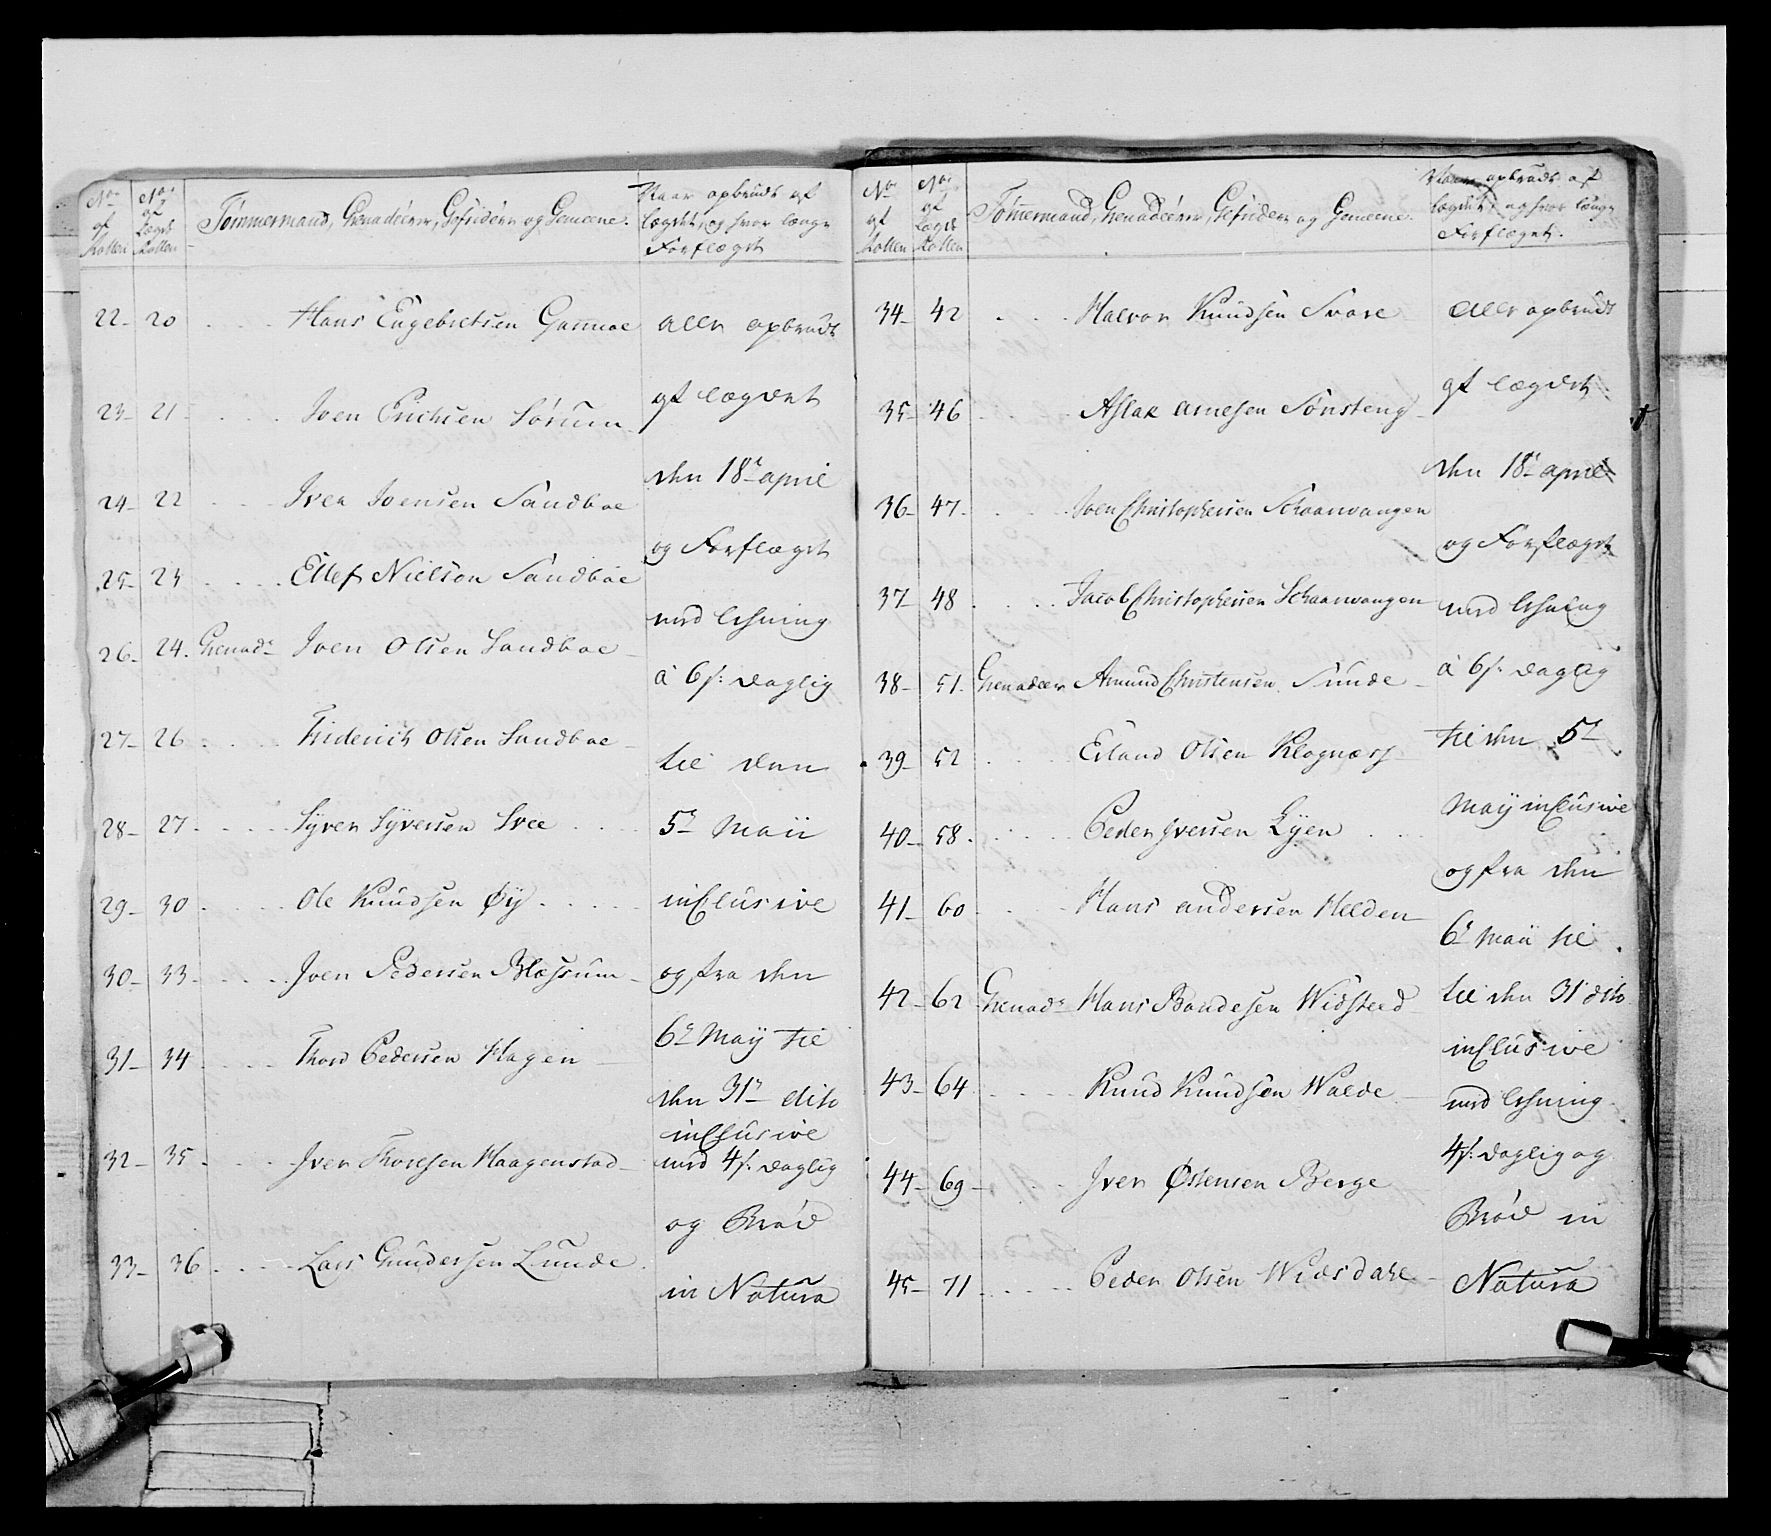 No af Rollen | No af Lægds Rollen | Tømmermand, Grenadeerer, Gefrider og Gemeene. | Naar opbrudt af Lægdet, og hvor længe Forflæget
22 - 20 . . . . Hans Engebretsen Gammae
23 - 21 - . . . Joen Erichsen Sørum
24 - 22 . . . . Iver Joensen Sandboe
25 - 23 . . . . Ellef Nielsen Sandboe
26 - 24. Grenadr Joen Olsen Sandboe
27 - 26 . . . . Friderich Olsen Sandboe
28 - 27 - . . . Syver Syversen Svee . . .
29 - 30 . . . . Ole Knudsen Øy . . . .
30 - 33 - . . . Joen Pedersen Blæssum
31 - 34 . . . . Thord Pedersen Hagen
32 - 35 . . . . Iver Thoresen Haagenstad
33 - 36 . . . . Lars Gundersen Lunde
alle opbrudt
af Lægdet
den 18de april
og Forflæget
med Lehning
à 6 s: daglig
til den
5te Maii
inclusive
og fra den
6te May til
den 31te dito
inclusive
med 4 s: daglig
og Brød
in Natura
No af Rollen | No af Lægds Rollen | Tømmermand, Grenadeerer, Gefrider og Gemeene. | Naar opbrudt af Lægdet, og hvor længe Forflæget.
34 - 42 . . . Halvor Knudsen Svare
35 - 46 . . . Aslak Arnesen Sønsteng
36 - 47 . . . Joen Christophersen Schaarvangen
37 - 48 . . . Jacob Christophersen Schaarvangen
38 - 51. Grenadeer Amund Christensen Sunde
39 - 52 . . . Erland Olsen Klognæs
40 - 58 . . . Peder Iversen Lyen
41 - 60 . . . Hans Andersen Helden
42 - 62 Grenadr Hans Baardesen Widsteed
43 - 64 . . . Knud Knudsen Walde
44 - 69 - . . Iver Østensen Berge
45 - 71 . . . Peder Olsen Widsdahl
alle opbrudt
af Lægdet
den 18de april
og Forflæget
med Lehning
à 6 s: daglig
til den 5te
Maij inclusive
og fra den
6te Maii til
til den 31 dito
inclusive
med Lehning
4 s: daglig og
Brød in
Natura